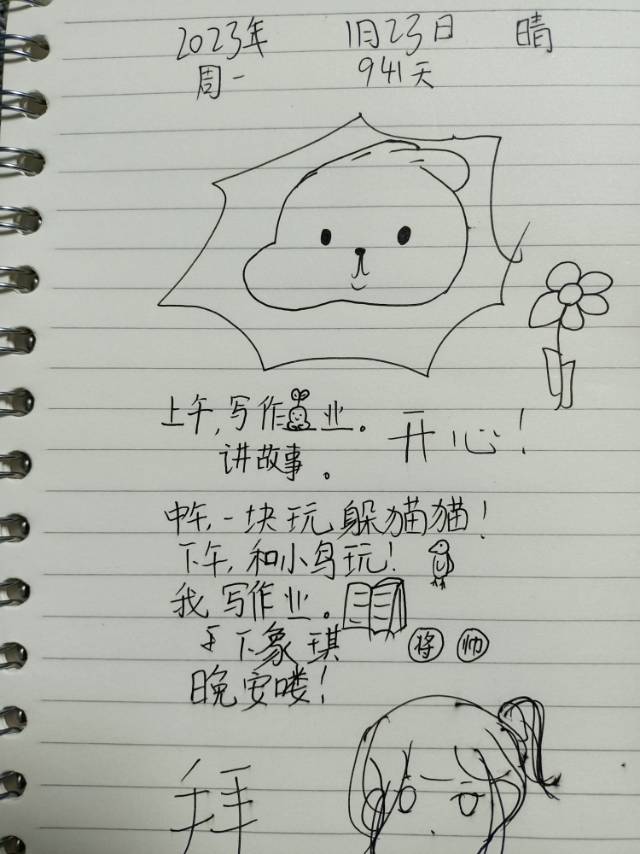 2023年 1月23日 晴
周一 941天
上午,写作业。 开心!
讲故事。
中午,一块玩躲猫猫!
下午,和小鸟玩!
我写作业。
下象琪 将 帅
晚安喽!
拜